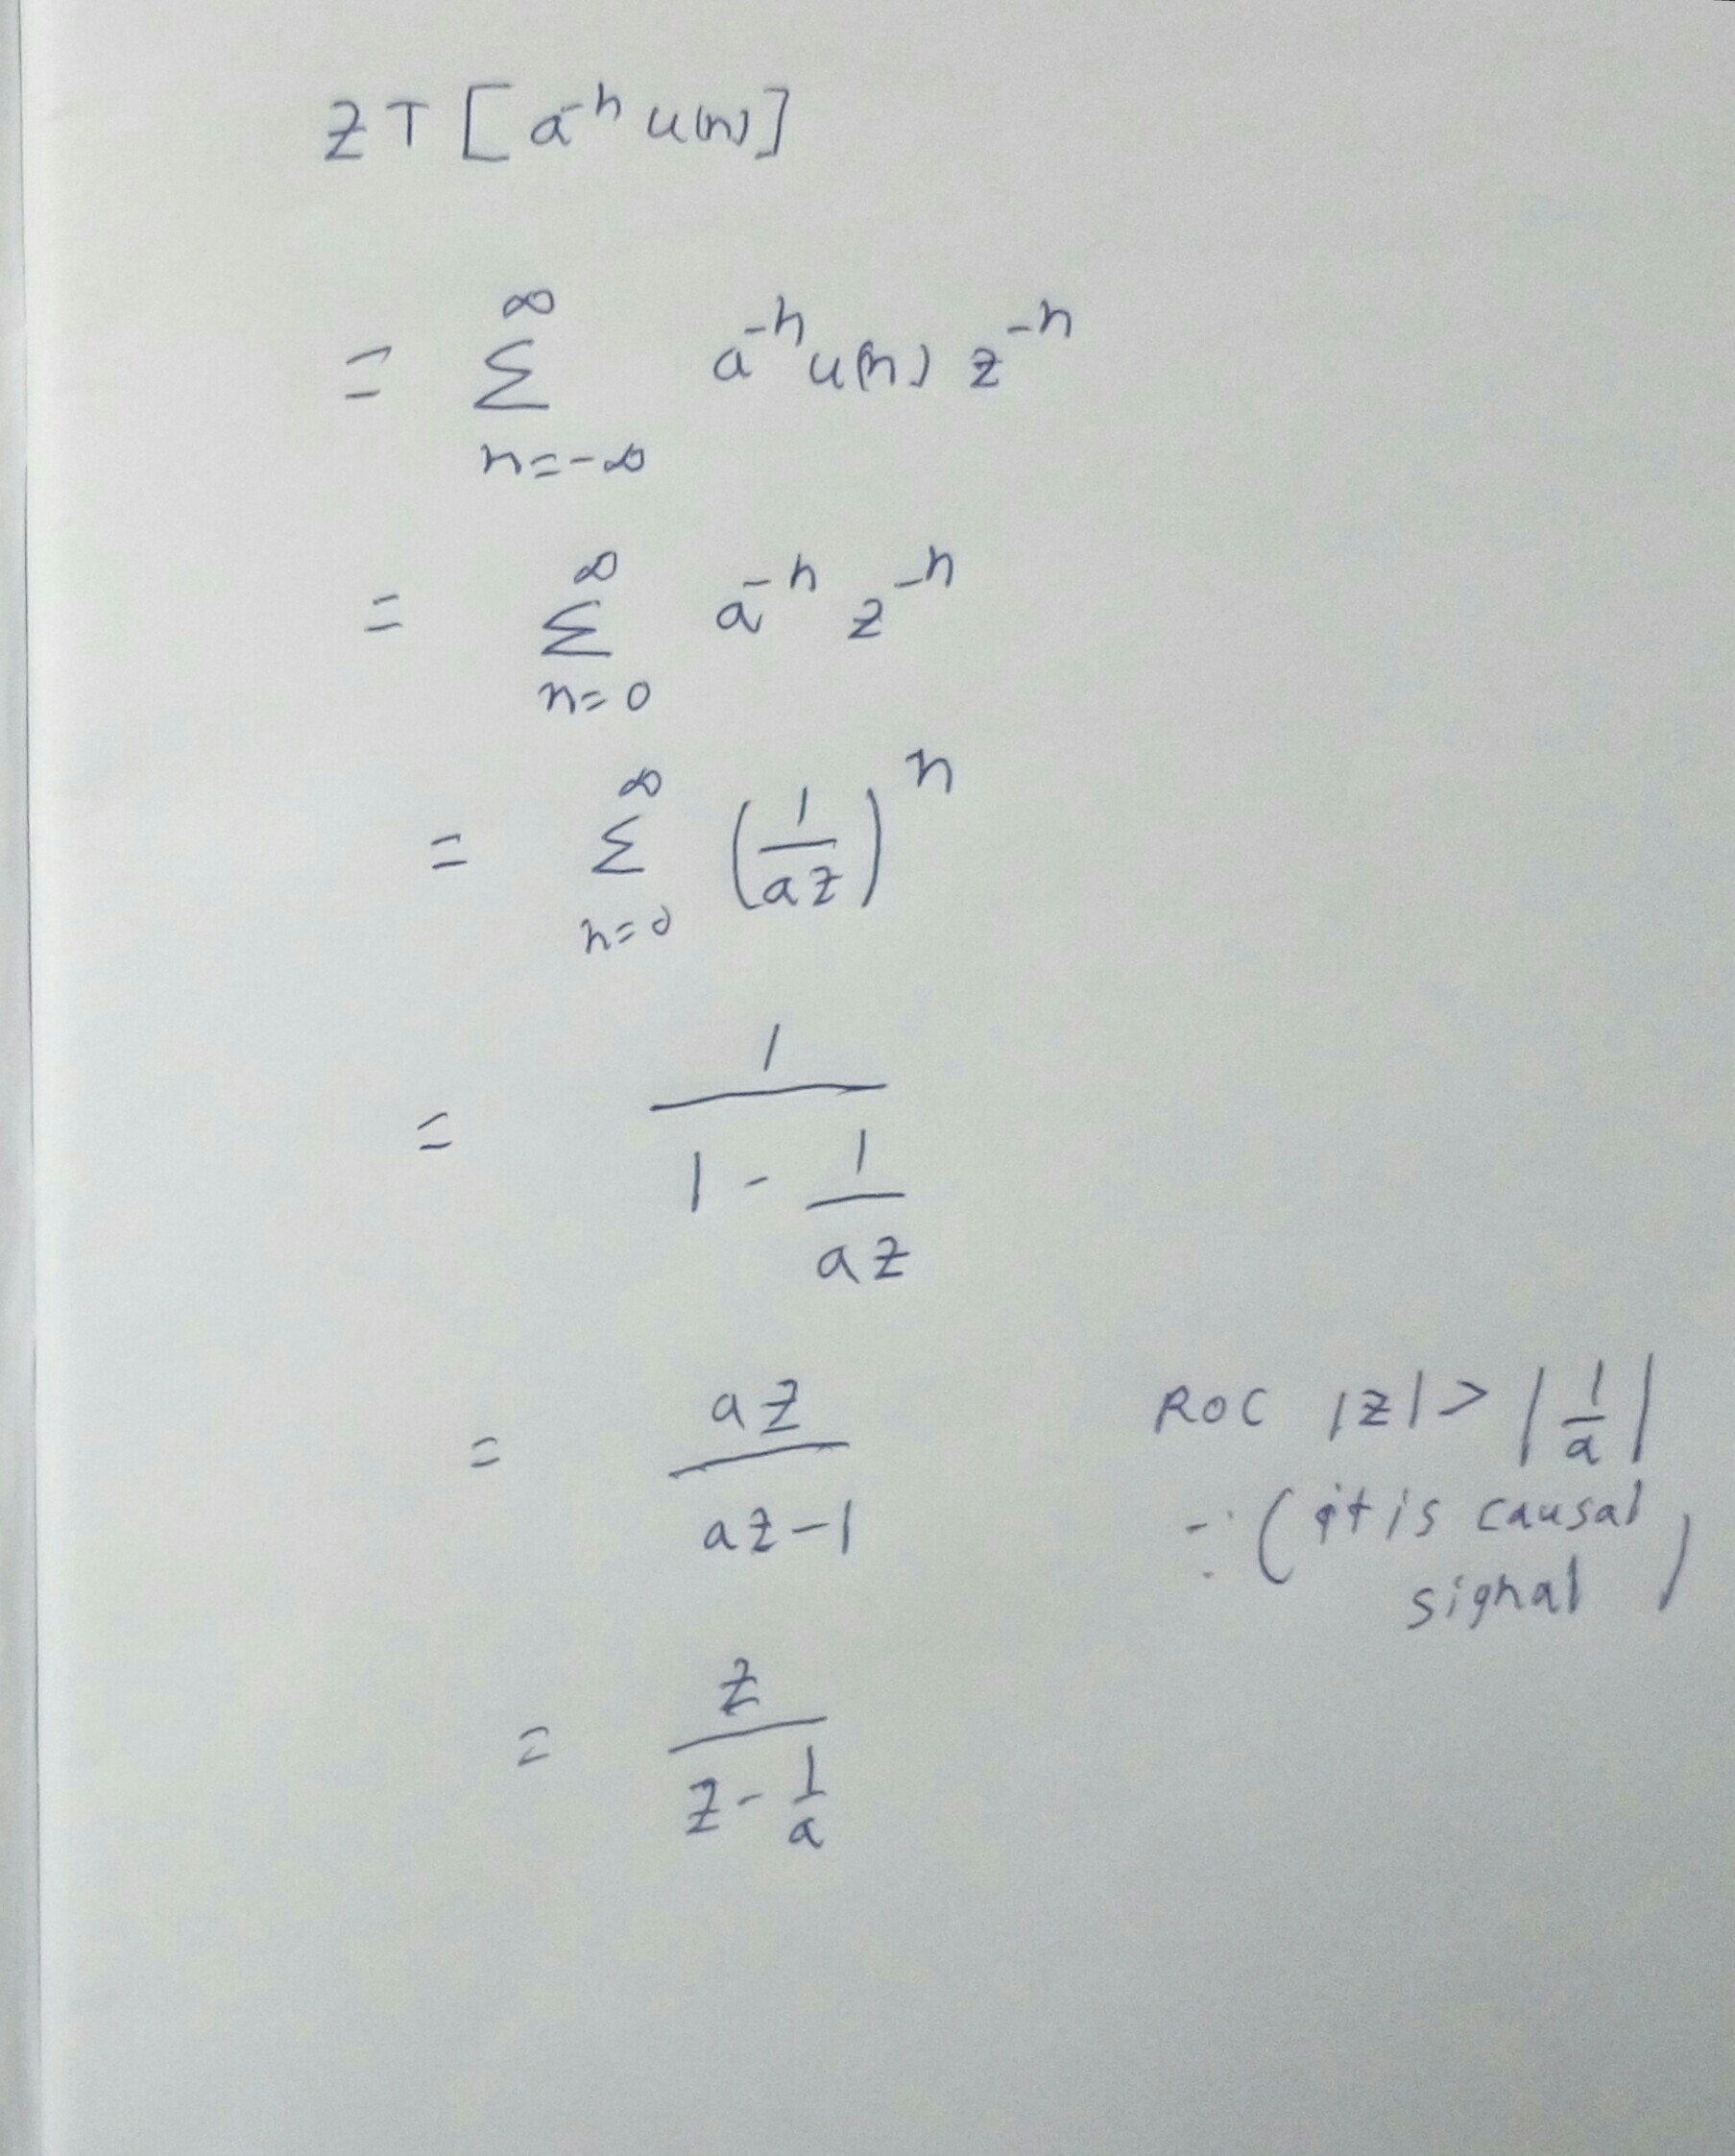 ZT [a⁻ⁿ u(n)]
= ∞ Σ n=-∞ a⁻ⁿ u(n) z⁻ⁿ
= ∞ Σ n=0 a⁻ⁿ z⁻ⁿ
= ∞ Σ n=0 (1/az)ⁿ
= 1/(1 - 1/az)
= az/(az-1) ROC |z| > |1/a|
∵ (it is causal
signal)
= z/(z - 1/a)